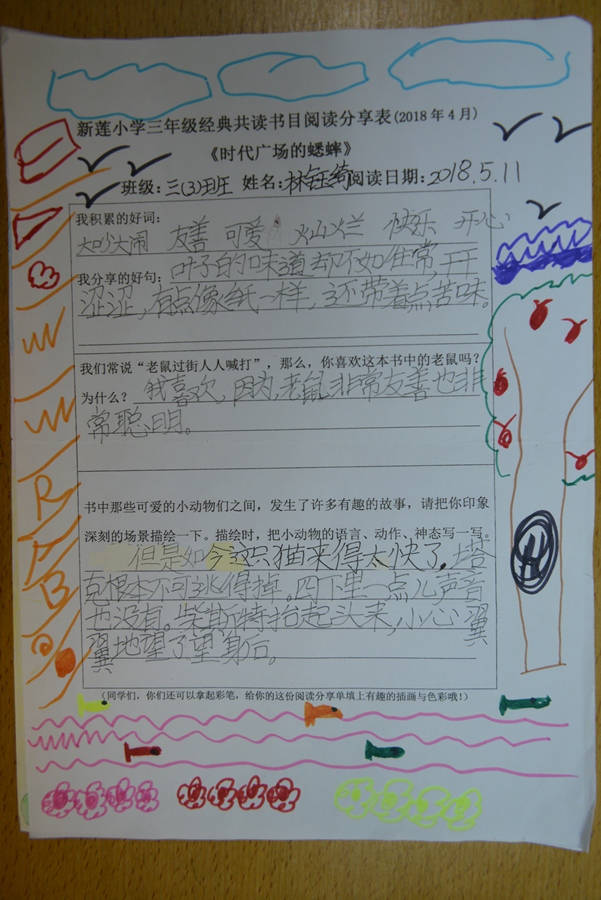 新莲小学三年级经典共读书目阅读分享表(2018年4月)
《时代广场的蟋蟀》
班级:三(3)班 姓名:林钰绮阅读日期:2018.5.11
我积累的好词:
大吵大闹 友善 可爱 灿烂 快乐 开心
我分享的好句:叶子的味道却不如往常,干干
涩涩,有点像纸一样,还带着点苦味。
我们常说“老鼠过街人人喊打”,那么,你喜欢这本书中的老鼠吗?
为什么?我喜欢,因为,老鼠非常友善也非
常聪明。
书中那些可爱的小动物们之间,发生了许多有趣的故事,请把你印象
深刻的场景描绘一下。描绘时,把小动物的语言、动作、神态写一写。
但是如今这只猫来得太快了,塔
克根本不可逃得掉。四下里一点儿声音
也没有。柴斯特抬起头来,小心翼
翼地望了望身后。
(同学们,你们还可以拿起彩笔,给你的这份阅读分享单填上有趣的插画与色彩哦!)
R
A
B
H